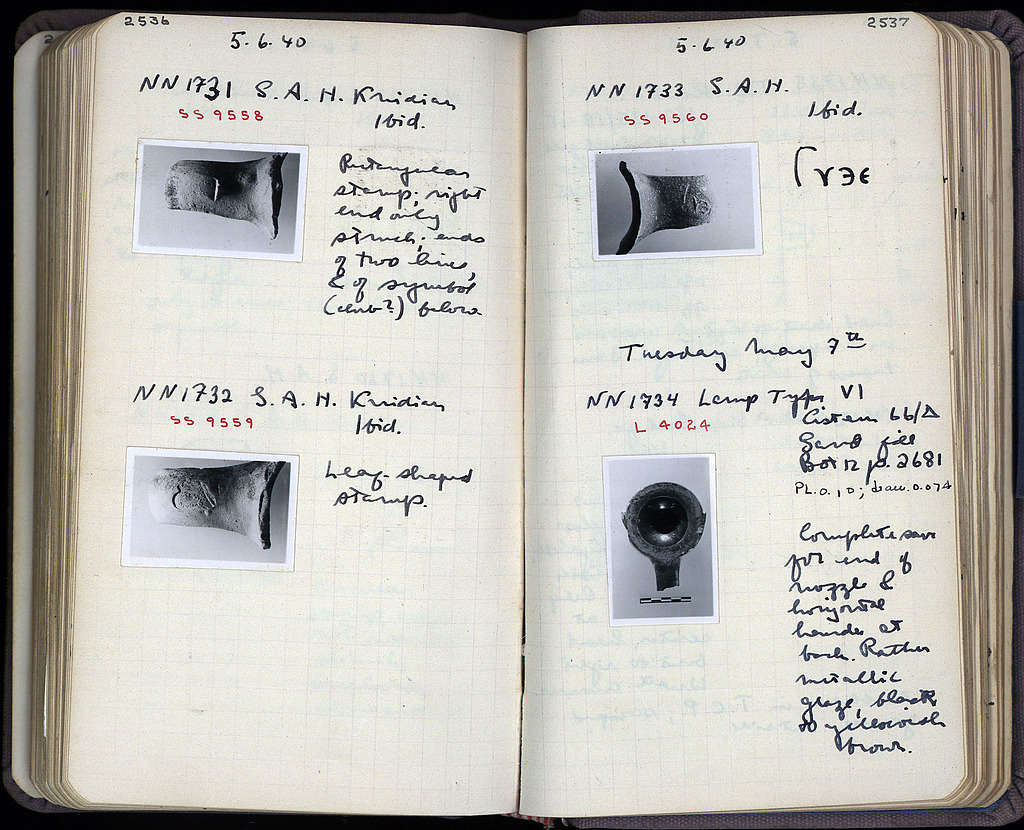 2536
5.6.40
NN1731 S.A.H. Knidian
SS 9558
Ibid.
Rectangular
stamp; right
end only
struck; ends
of two lines,
& of symbol
(club?) below.
NN1732 S.A.H. Knidian
SS 9559
Ibid.
Leaf-shaped
stamp.
2537
5.6.40
NN1733 S.A.H.
SS 9560
Ibid.
Γ٧ЭЄ
Tuesday May 7th
NN1734 Lamp Type VI
L 4024
Cistern 66/Δ
Sand fill
Bot 12 p. 2681
PL. 0.10; diam. 0.074
Complete save
for end of
nozzle &
horizontal
handle at
back. Rather
metallic
glaze, black
to yellowish
brown.